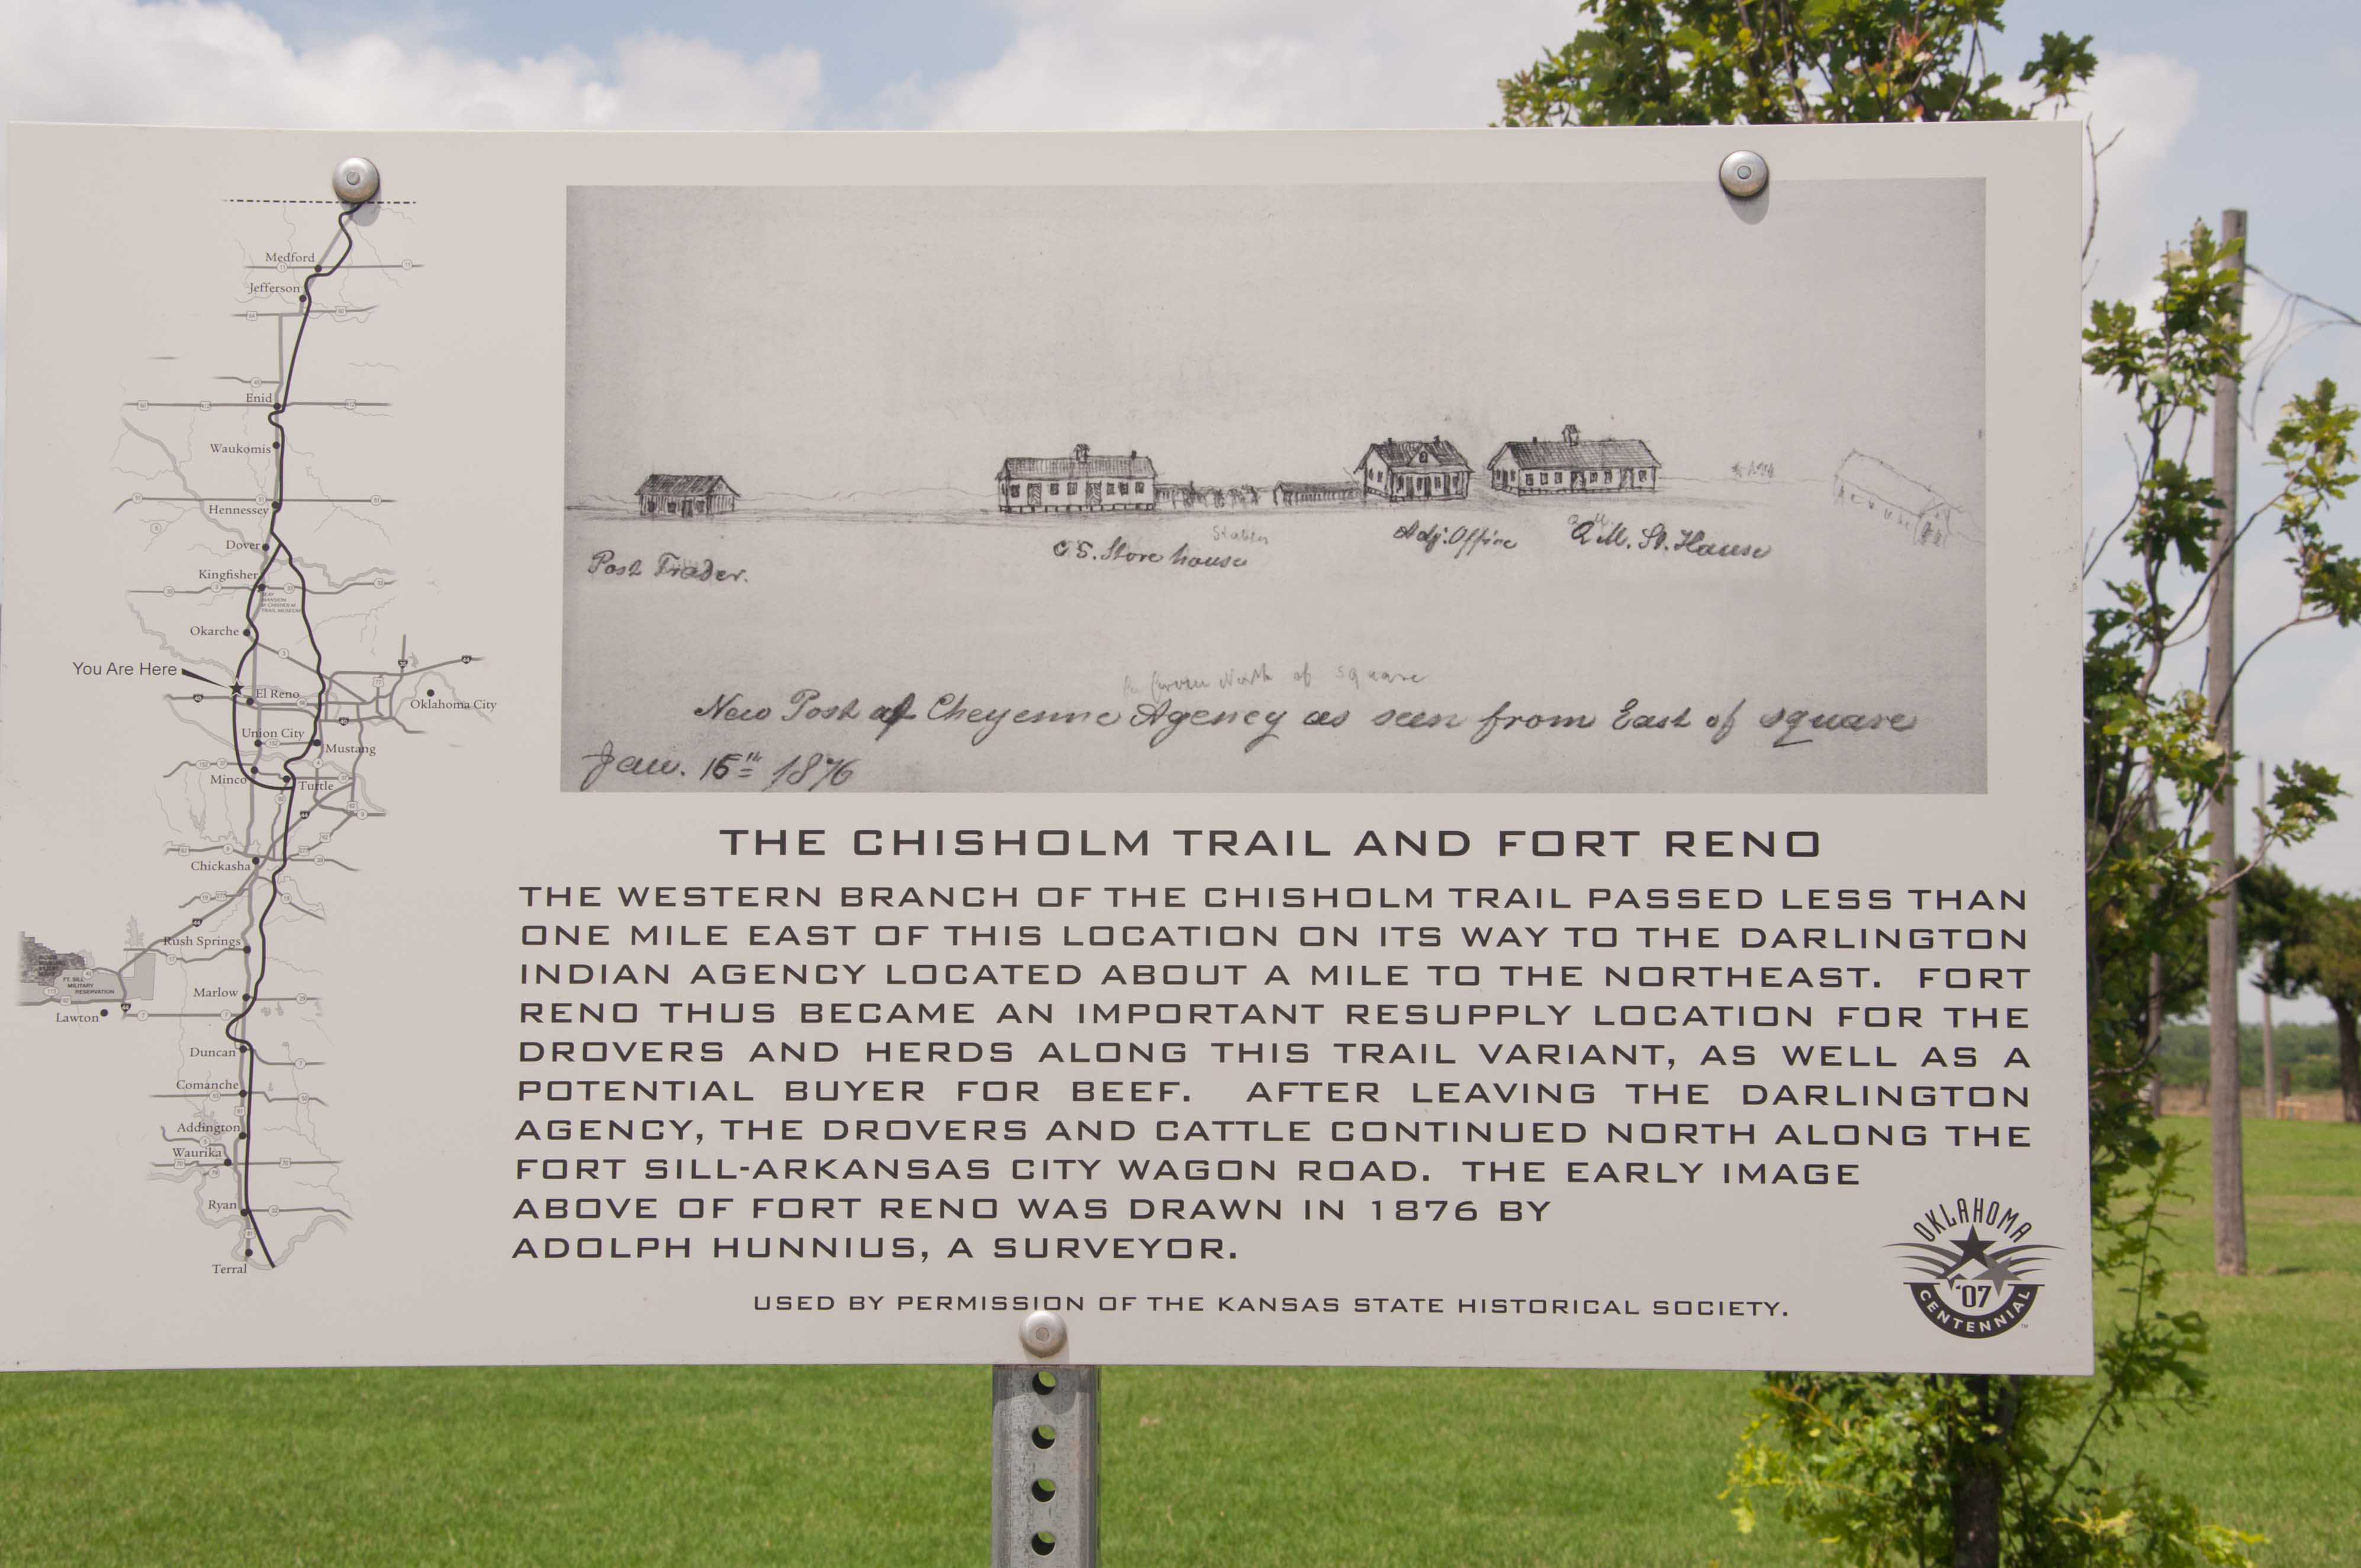 Medford
Jefferson
Enid
Waukomis
Hennessey
Dover
Kingfisher
Okarche
You Are Here
El Reno
Oklahoma City
Union City
Mustang
Minco
Tuttle
Chickasha
Rush Springs
FT. SILL
MILITARY
RESERVATION
Marlow
Lawton
Duncan
Comanche
Addington
Waurika
Ryan
Terral
Post Trader.
C S. Store house
Stables
Adj. Office
Q. M. St. House
from North of square
New Post at Cheyenne Agency as seen from East of square
Jan. 15th 1876
THE CHISHOLM TRAIL AND FORT RENO
THE WESTERN BRANCH OF THE CHISHOLM TRAIL PASSED LESS THAN
ONE MILE EAST OF THIS LOCATION ON ITS WAY TO THE DARLINGTON
INDIAN AGENCY LOCATED ABOUT A MILE TO THE NORTHEAST. FORT
RENO THUS BECAME AN IMPORTANT RESUPPLY LOCATION FOR THE
DROVERS AND HERDS ALONG THIS TRAIL VARIANT, AS WELL AS A
POTENTIAL BUYER FOR BEEF. AFTER LEAVING THE DARLINGTON
AGENCY, THE DROVERS AND CATTLE CONTINUED NORTH ALONG THE
FORT SILL-ARKANSAS CITY WAGON ROAD. THE EARLY IMAGE
ABOVE OF FORT RENO WAS DRAWN IN 1876 BY
ADOLPH HUNNIUS, A SURVEYOR.
USED BY PERMISSION OF THE KANSAS STATE HISTORICAL SOCIETY.
OKLAHOMA
'07
CENTENNIAL